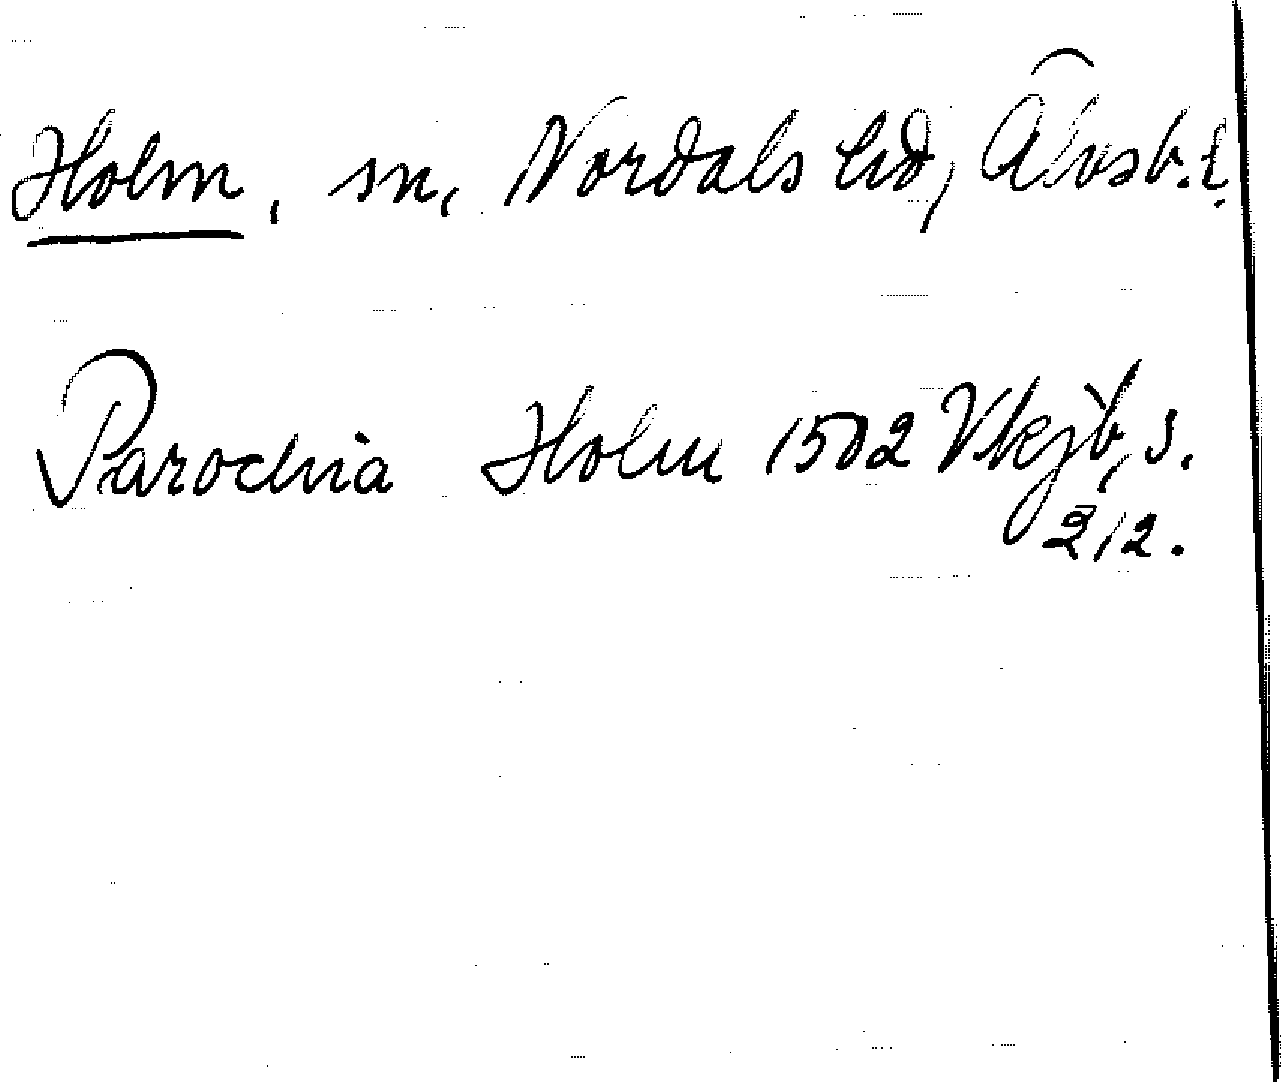 Holm, sn, Nordals hd, Älvsb. l.
Parochia Holm 1502 Vkjb, s.
212.